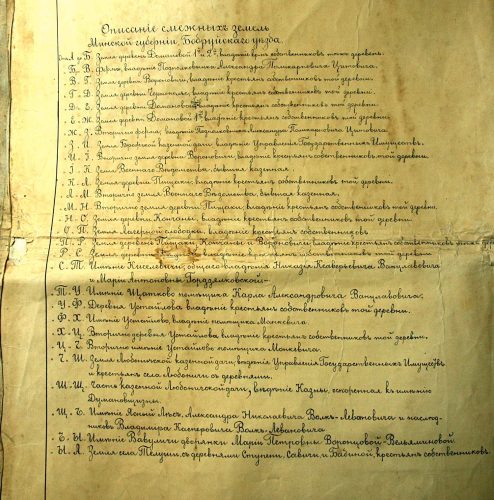 Описаніе смежныхъ земель
Минской губерніи, Бобруйскаго уѣзда.
Отъ А до Б. Земля деревни 1ой и 2ой, владѣніе крест. собственниковъ тѣхже деревень.
" Б " В. Фермы, владѣніе Подполковника Александра
" В " Г. Земля деревни Вороновичи, владѣніе крестьянъ собственниковъ той деревни.
" Г " Д. Земля деревни владѣніе крестьянъ собственниковъ той деревни.
" Д " Е. Земля деревни владѣніе крестьянъ собственниковъ той деревни.
" Е " Ж. Земля деревни 1ой владѣніе крестьянъ собственниковъ той деревни.
" Ж " З. Вторично ферма, владѣніе Подполковника Александра
" З " И. Земля казенной дачи, владѣніе Управленія Государственныхъ Имуществъ.
" И " І. Вторично земля деревни Вороновичи, владѣніе крестьянъ собственниковъ той деревни.
" І " К. Земля Военнаго Вѣдомства, бывшая казенная.
" К " Л. Земля деревни Плущаки, владѣніе крестьянъ собственниковъ той деревни.
" Л " М. Вторично земля Военнаго Вѣдомства, бывшая казенная.
" М " Н. Вторично земля деревни Плущаки, владѣніе крестьянъ собственниковъ той деревни.
" Н " О. Земля деревни Кончаны, владѣніе крестьянъ собственниковъ той деревни.
" О " П. Земля слободки, владѣніе крестьянъ собственниковъ.
" П " Р. Земля деревень Плущаки, Кончаны и Вороновичи владѣніе крестьянъ собственниковъ тѣхже
" Р " С. Земля деревни владѣніе крестьянъ собственниковъ той деревни.
" С " Т. Имѣніе Киселевичи, общаго владѣнія Ксаверьевича
и Маріи Антоновны
" Т " У. Имѣніе Щатково помѣщика Карла Александровича
" У " Ф. Деревня Устайлова владѣніе крестьянъ собственниковъ той деревни.
" Ф " Х. Имѣніе Устайлово, владѣніе помѣщика Манкевича.
" Х " Ц. Вторично деревня Устайлова владѣніе крестьянъ собственниковъ той деревни.
" Ц " Ч. Вторично имѣніе Устайлово помѣщика Манкевича.
" Ч " Ш. Земля Любоничской казенной дачи, вѣдѣніе Управленія Государственныхъ Имуществъ
и крестьянъ села Любоничи съ деревнями.
" Ш " Щ. Часть казенной Любоничской дачи, вѣдѣніе Казны, оспоренная къ имѣнію
" Щ " Ъ. Имѣніе Ясный Лѣсъ, Александра Николаевича Волкъ-Левановича и наслѣд-
никовъ Владиміра Касперовича Волкъ-Левановича
" Ъ " Ы. Имѣніе Бабуличи дворянки Маріи Петровны Воронцовой-Вельяминовой.
" Ы " А. Земля села Телуши, съ деревнями Ступени, Савичи и Бабиной, крестьянъ собственниковъ.